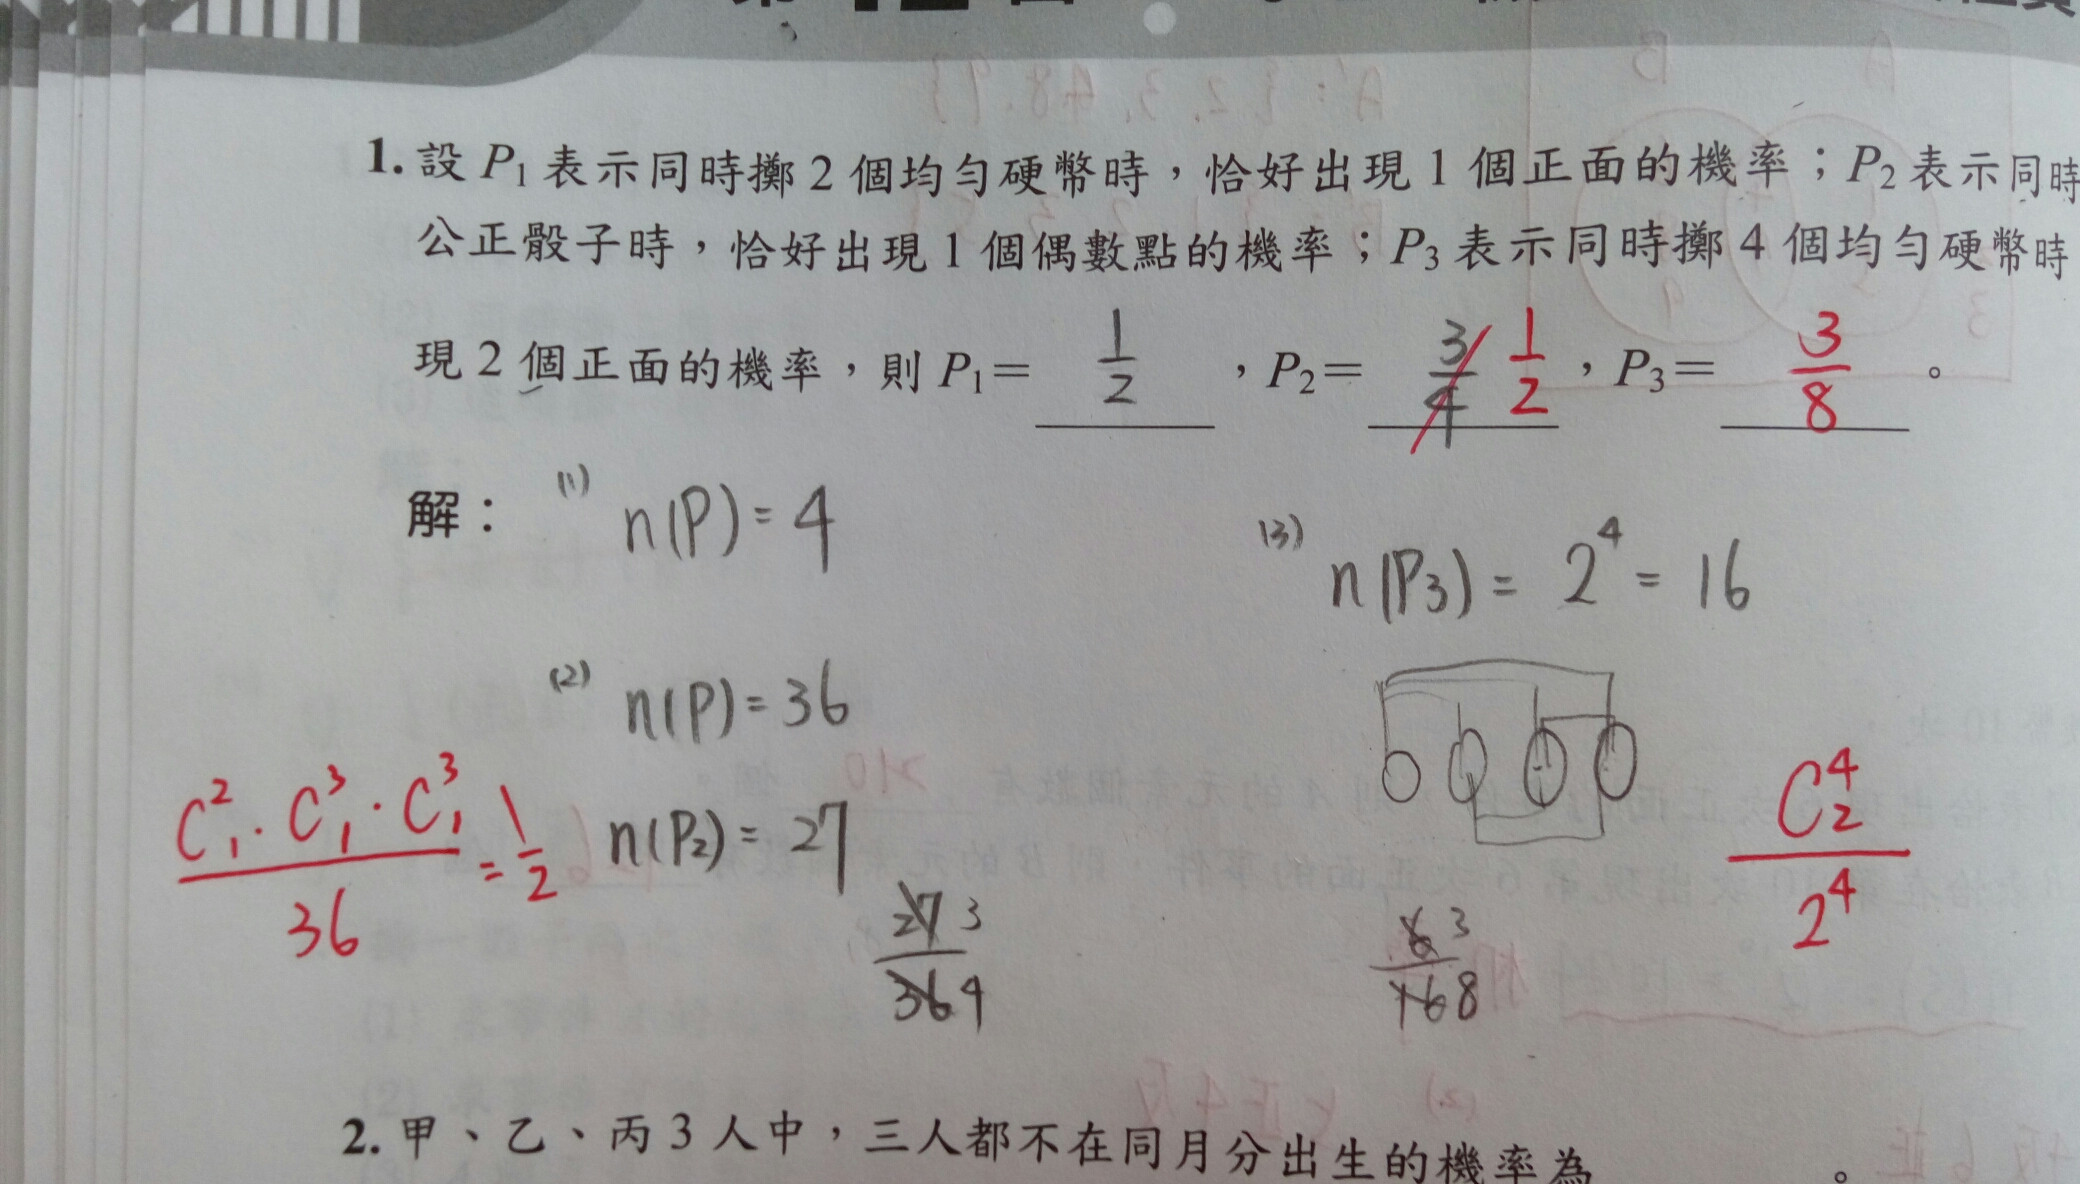 1. 設 P₁ 表示同時擲 2 個均勻硬幣時，恰好出現 1 個正面的機率；P₂ 表示同時
公正骰子時，恰好出現 1 個偶數點的機率；P₃ 表示同時擲 4 個均勻硬幣時
現 2 個正面的機率，則 P₁= 1/2 ，P₂= 3/4 1/2 ，P₃= 3/8 。
解： (1) n(P)=4
(3) n(P₃) = 2⁴ = 16
(2) n(P)=36
C²₁·C³₁·C³₁/36 = 1/2
n(P₂)=27
27/36 3/4
6/16 3/8
C⁴₂/2⁴
2. 甲、乙、丙 3 人中，三人都不在同月分出生的機率為 。